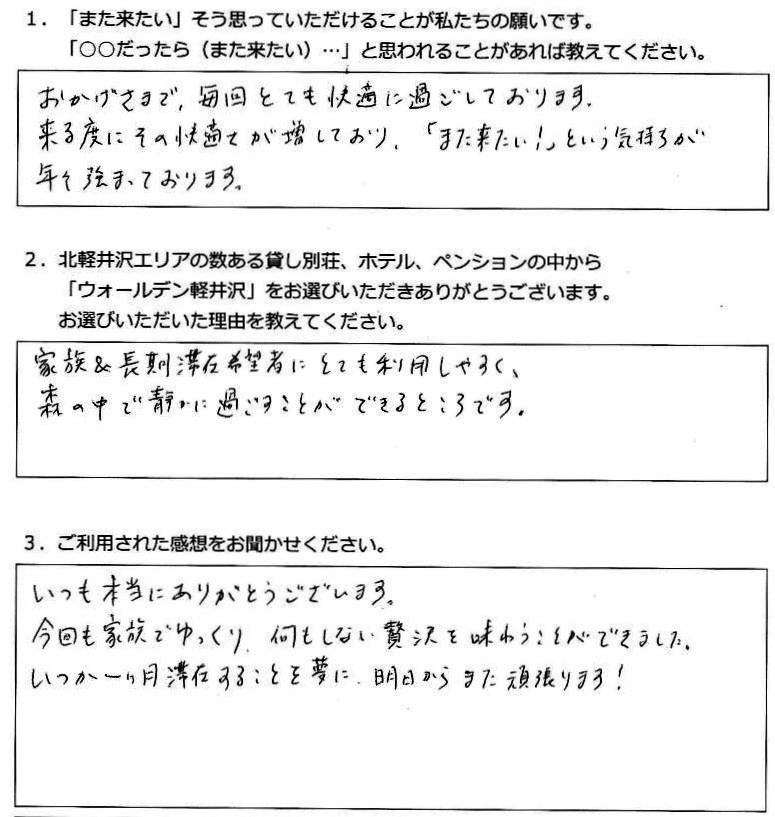 1．「また来たい」そう思っていただけることが私たちの願いです。
「○○だったら（また来たい）…」と思われることがあれば教えてください。
おかげさまで、毎回とても快適に過ごしております。
来る度にその快適さが増しており、「また来たい!」という気持ちが
年々強まっております。
2．北軽井沢エリアの数ある貸し別荘、ホテル、ペンションの中から
「ウォールデン軽井沢」をお選びいただきありがとうございます。
お選びいただいた理由を教えてください。
家族&長期滞在希望者にとても利用しやすく、
森の中で静かに過ごすことができるところです。
3．ご利用された感想をお聞かせください。
いつも本当にありがとうございます。
今回も家族でゆっくり、何もしない贅沢を味わうことができました。
いつか一ヶ月滞在することを夢に、明日からまた頑張ります!